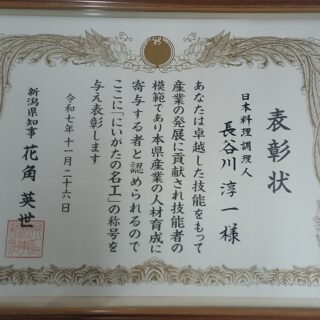 表彰状
日本料理調理人
長谷川淳一様
あなたは卓越した技能をもって
産業の発展に貢献され技能者の
模範であり本県産業の人材育成に
寄与する者と認められるので
ここに「にいがたの名工」の称号を
与え表彰します
令和七年十一月二十六日
新潟県知事 花角英世